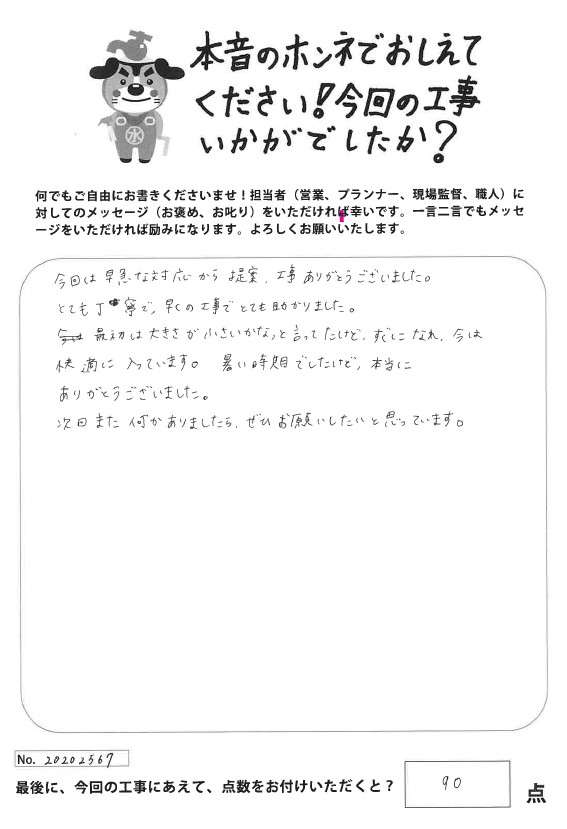 本音のホンネでおしえて
ください！今回の工事
いかがでしたか？
水
何でもご自由にお書きくださいませ！担当者（営業、プランナー、現場監督、職人）に
対してのメッセージ（お褒め、お叱り）をいただければ幸いです。一言二言でもメッセ
ージをいただければ励みになります。よろしくお願いいたします。
今回は早急な対応から提案、工事ありがとうございました。
とても丁寧で、早くの工事でとても助かりました。
最初は大きさが小さいかな、と言ってたけど、すぐになれ、今は
快適に入っています。暑い時期でしたけど、本当に
ありがとうございました。
次回また何かありましたら、ぜひお願いしたいと思っています。
No. 20202567
最後に、今回の工事にあえて、点数をお付けいただくと？ 90 点